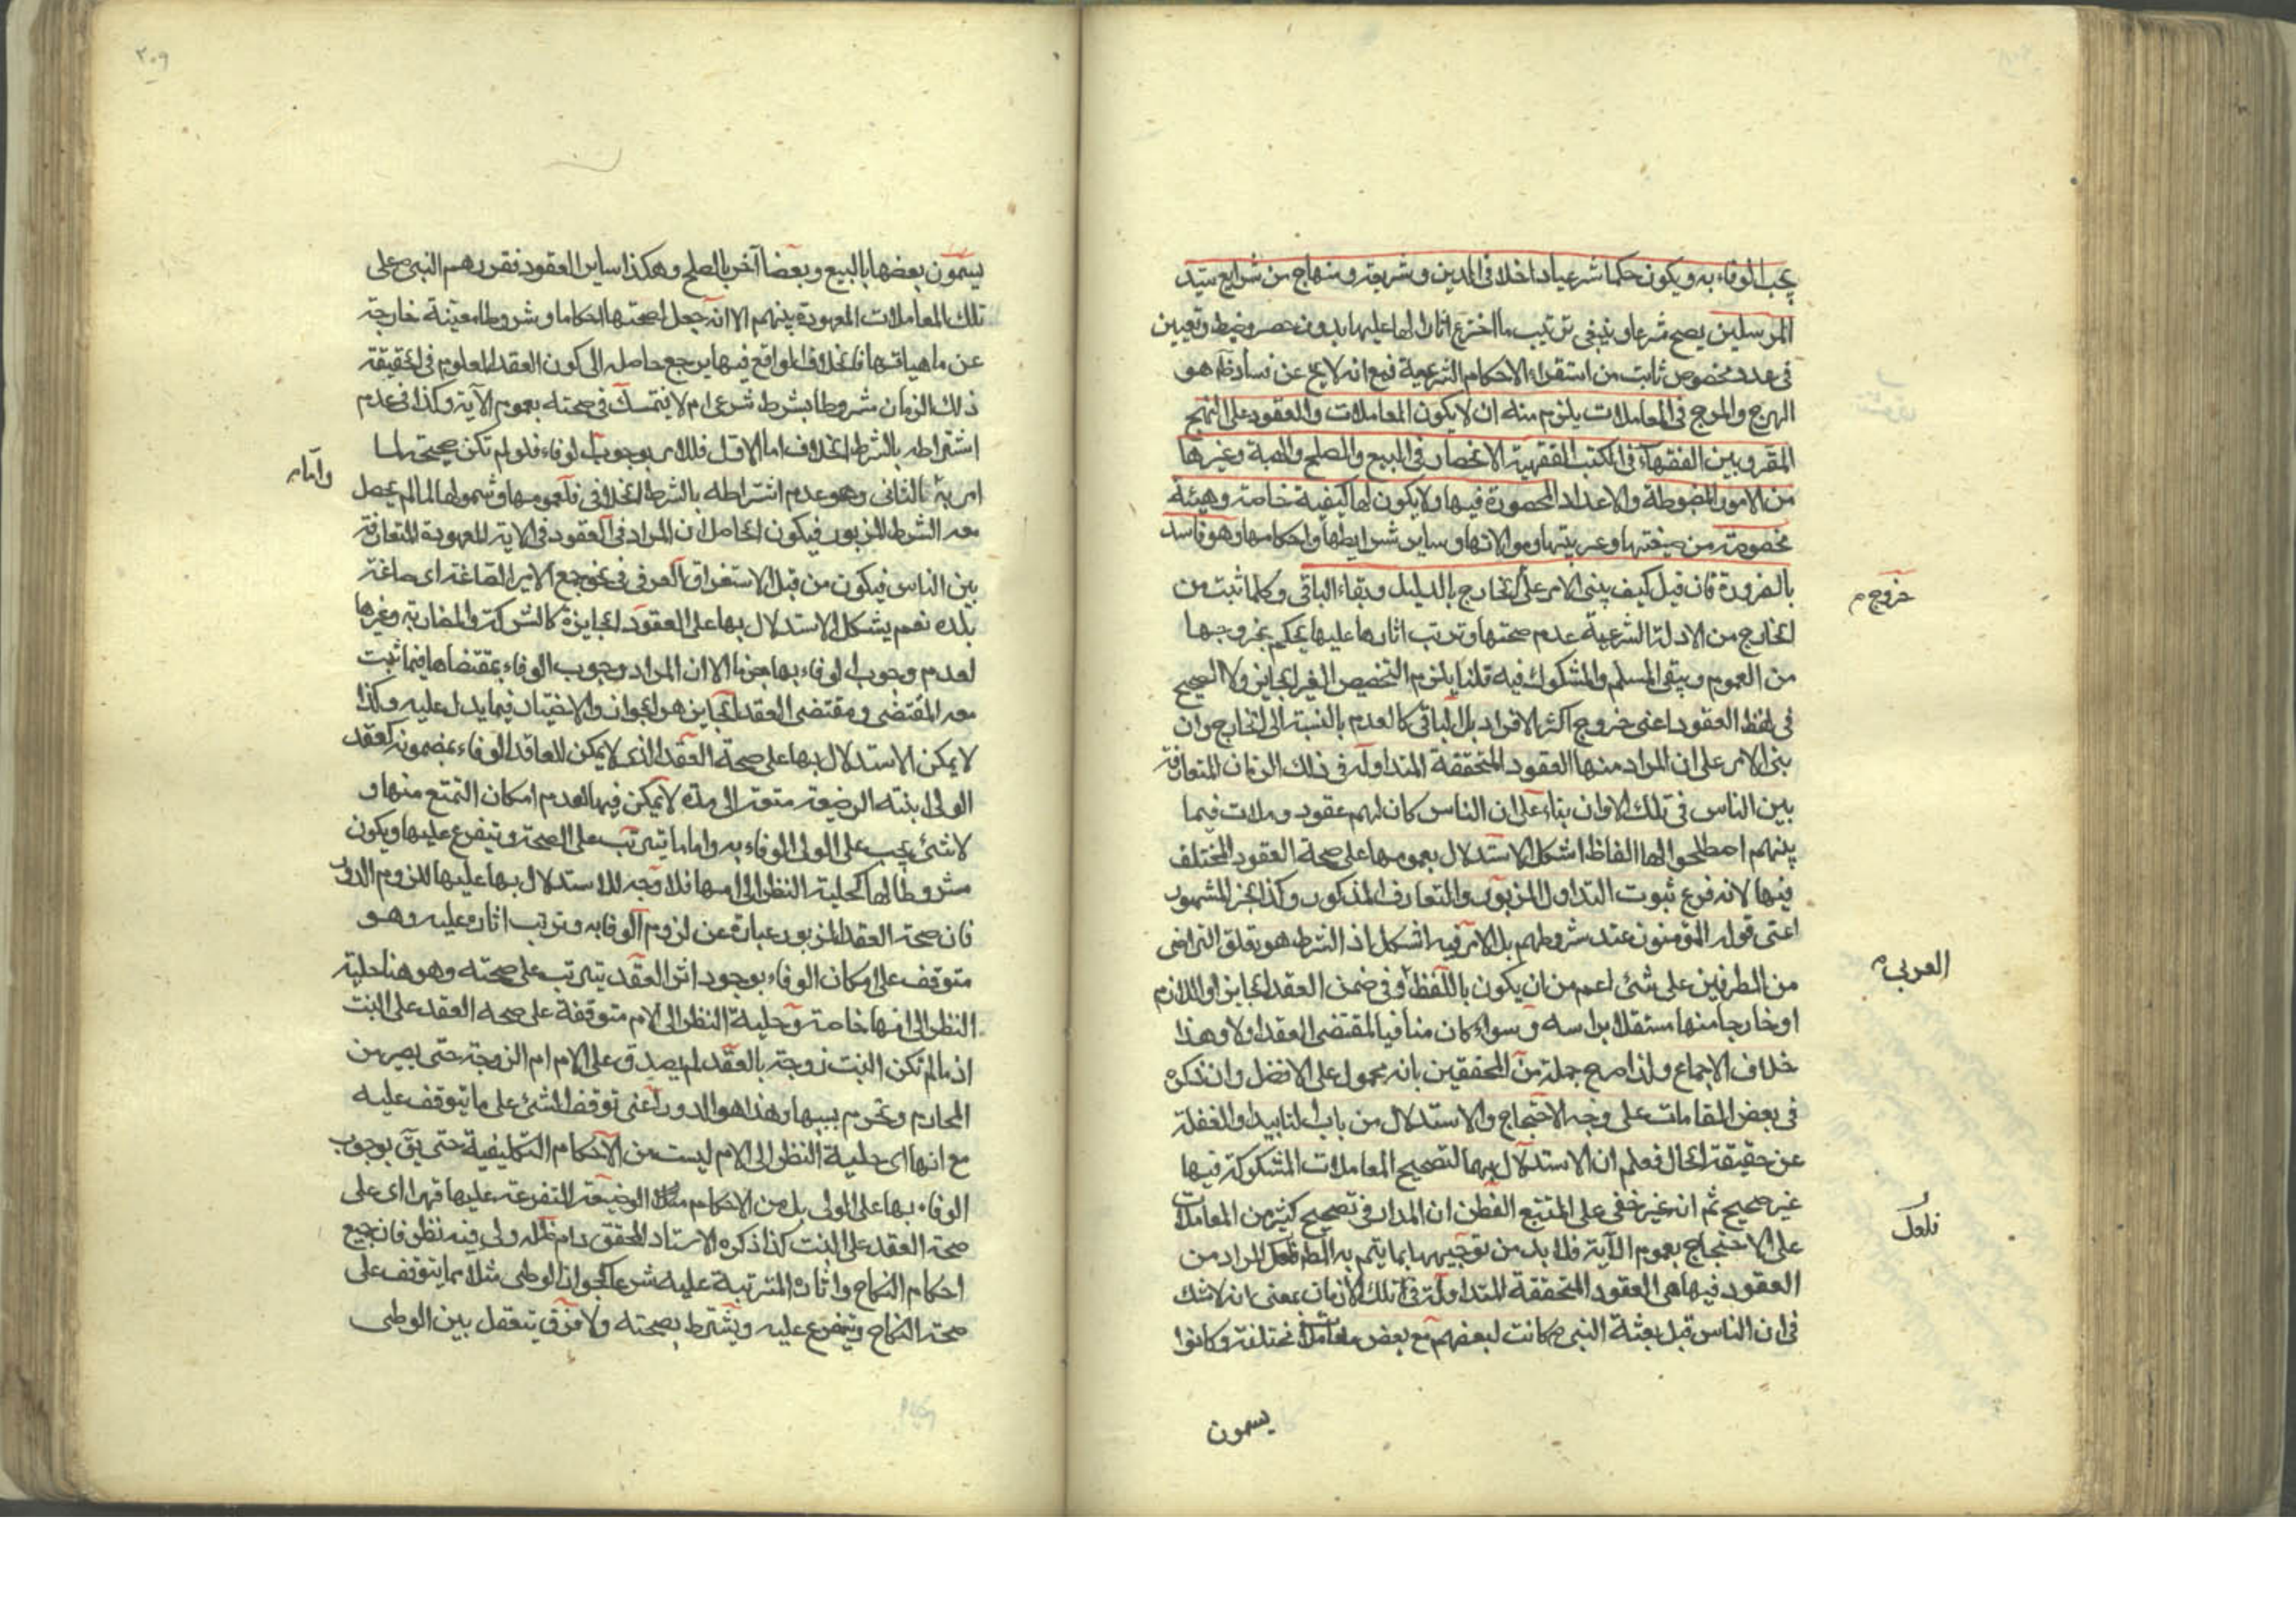 يجب الوفاء به ويكون حكما شرعيا داخلا في الدين وشريعة ومنهاج من شرايع سيد
المرسلين يصح شرعا وينبغي ترتيب ما اخترع اثارا لها عليها بدون حصر وضبط وتعيين
في عدد مخصوص ثابت من استقراء الاحكام الشرعية فمع انه لا يخ عن فساد ظ هو
الهرج والمرج في المعاملات يلزم منه ان لا يكون المعاملات والعقود على النهج
المقرر بين الفقهاء في الكتب الفقهية الانحصار في البيع والصلح والهبة وغيرها
من الامور المضبوطة والاعداد المحصورة فيها ولا يكون لها كيفية خاصة وهيئة
مخصوصة من صيغتها وعربيتها وموالاتها وساير شرايطها واحكامها وهو فاسد
بالضرورة فان قيل كيف يبنى الامر على الخارج بالدليل وبقاء الباقي وكلما ثبت من
خروج م
الخارج من الادلة الشرعية عدم صحتها وترتب اثارها عليها يحكم بخروجها
من العموم ويبقى المسلم والمشكوك فيه قلنا يلزم التخصيص الغير الجايز ولا الصحيح
في لفظ العقود اعني خروج اكثر الافراد بل الباقي كالعدم بالنسبة الى الخارج وان
بنى الامر على ان المراد منها العقود المتحققة المتداولة في ذلك الزمان المتعارفة
بين الناس في تلك الاوان بناء على ان الناس كان لهم عقود وملات فيما
بينهم اصطلحوا لها الفاظا اشكل الاستدلال بعمومها على صحة العقود المختلف
فيها لانه فرع ثبوت التداول المزبور والتعارف المذكور وكذا الخبر المشهور
اعني قوله المؤمنون عند شروطهم بل الامر فيه اشكل اذ الشرط هو تعلق التراضي
العربي
من الطرفين على شئ اعم من ان يكون باللفظ او في ضمن العقد الجايز او اللازم
او خارجا منها مستقلا براسه وسواء كان منافيا لمقتضى العقد اولا وهذا
خلاف الاجماع ولذا صرح جملة من المحققين بانه محمول على الافضل وان ذكره
في بعض المقامات على وجه الاحتجاج والاستدلال من باب التاييد او الغفلة
عن حقيقة الحال فعلم ان الاستدلال بها لتصحيح المعاملات المشكوكة فيها
غير صحيح ثم انه غير خفي على المتتبع الفطن ان المدار في تصحيح كثير من المعاملات
فلعل
على الاحتجاج بعموم الآية فلا بد من توجيهها بما يتم به المط فلعل المراد من
العقود فيها هي العقود المتحققة المتداولة في تلك الازمان بمعنى انه لا شك
في ان الناس قبل بعثة النبي ص كانت لبعضهم مع بعض معاملات مختلفة وكانوا
يسمون
٢٠٩
يسمون بعضها بالبيع وبعضا آخر بالصلح وهكذا ساير العقود فقررهم النبي ص على
تلك المعاملات المعهودة بينهم الا انه جعل لصحتها احكاما وشروطا معينة خارجة
عن ماهياتها فالخلاف الواقع فيها يرجع حاصله الى كون العقد المعلوم في الحقيقة
ذلك الزمان مشروطا بشرط شرعي ام لا يتمسك في صحته بعموم الآية وكذا في عدم
اشتراطه بالشرط الخلاف اما الاول فللامر بوجوب الوفاء فلو لم تكن صحيحة لما
وامانه
امر به الثاني وهو عدم اشتراطه بالشرط الخلافي فلعمومها وشمولها لما لم يحصل
معه الشرط المزبور فيكون الحاصل ان المراد في العقود في الاية المعهودة المتعارفة
بين الناس فيكون من قبيل الاستغراق العرفي في نحو جمع الامير الصاغة اي صاغة
بلده نعم يشكل الاستدلال بها على العقود الجايزة كالشركة والمضاربة وغيرها
لعدم وجوب الوفاء بها جزما الا ان المراد وجوب الوفاء بمقتضاها فيما ثبت
معه المقتضى ومقتضى العقد الجايز هو الجواز والاختيار فيما يدل عليه وكذا
لا يمكن الاستدلال بها على صحة العقد الذي لا يمكن للعاقد الوفاء بمضمونه كعقد
الولي ابنته الرضيعة متعة الى مدة لا يمكن فيها لعدم امكان التمتع منها و
لا شئ يجب على الولي الوفاء به واما ما يترتب على الصحة ويتفرع عليها ويكون
مشروطا لها كحلية النظر الى امها فلا وجه للاستدلال بها عليها للزوم الدور
فان صحة العقد المزبور عبارة عن لزوم الوفا به وترتب اثاره عليه وهو
متوقف على امكان الوفاء بوجود اثر العقد يترتب على صحته وهو هنا حلية
النظر الى امها خاصة وحلية النظر الى الام متوقفة على صحة العقد على البنت
اذ ما لم تكن البنت زوجة بالعقد لم يصدق على الام ام الزوجة حتى يصير من
المحارم وتحرم بسببها وهذا هو الدور اعني توقف الشئ على ما يتوقف عليه
مع انها اي حلية النظر الى الام ليست من الاحكام التكليفية حتى يق بوجوب
الوفاء بها على المولى بل من الاحكام الوضيعة المتفرعة عليها قهرا اي على
صحة العقد على البنت كذا ذكره الاستاد المحقق دام ظله ولي فيه نظر فان جميع
احكام النكاح واثاره المترتبة عليه شرعا كجواز الوطي مثلا مما يتوقف على
صحة النكاح ويتفرع عليه ويشترط بصحته ولا فرق يتعقل بين الوطي